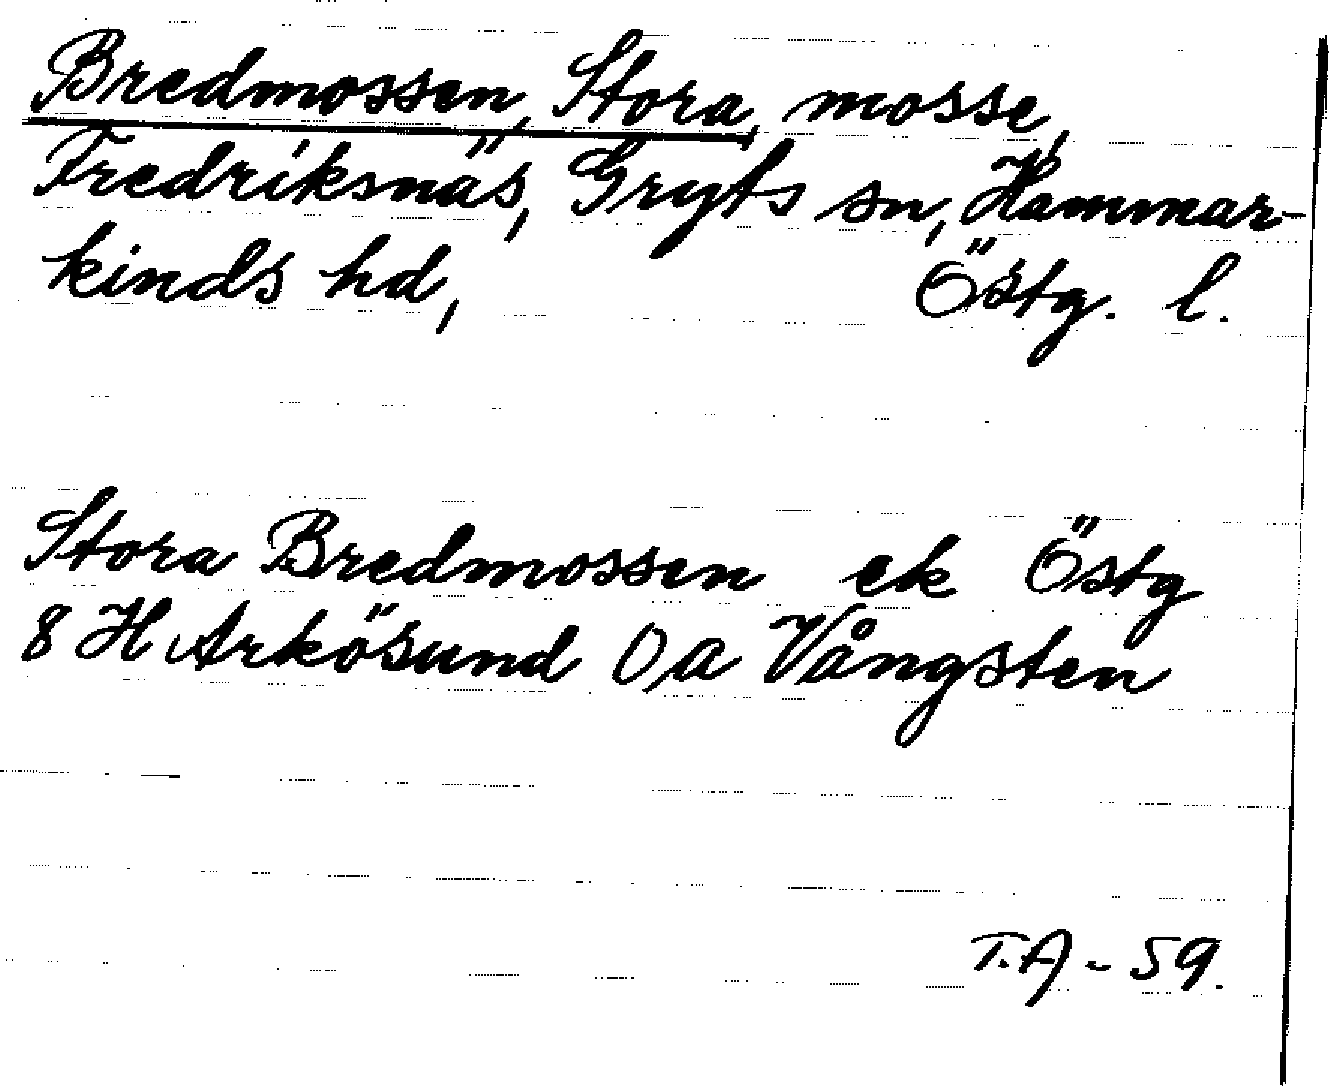 Bredmossen, Stora, mosse,
Fredriksnäs, Gryts sn, Hammar-
kinds hd, Östg. l.
Stora Bredmossen ek Östg
8 H Arkösund Oa Vångsten
T.A - 59.